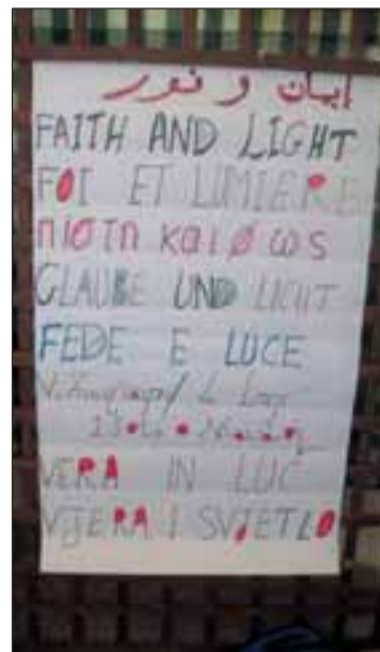 إيمان و نور
FAITH AND LIGHT
FOI ET LUMIERE
πιστη και φως
GLAUBE UND LICHT
FEDE E LUCE
VERA IN LUČ
VJERA I SVJETLO